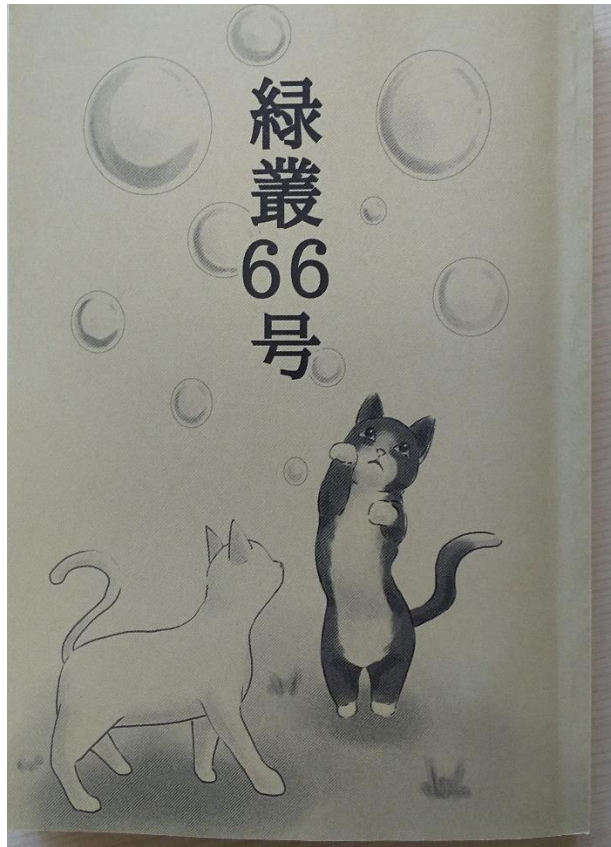 緑叢66号